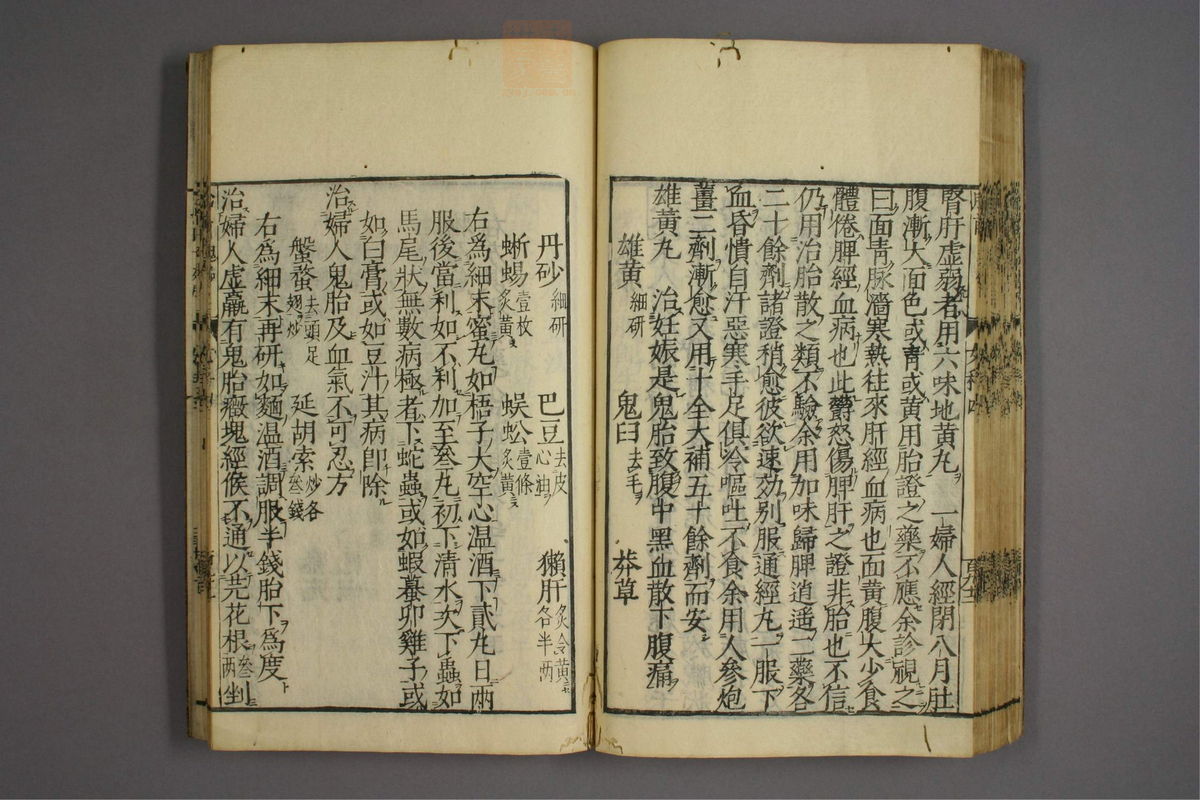 腎肝虚弱者用六味地黄丸 一婦人經閉八月肚
腹漸大面色或青或黄用胎證之藥不應余診視之
曰面青脉濇寒熱往來肝經血病也面黄腹大少食
體倦脾經血病也此欝怒傷脾肝之證非胎也不信
仍用治胎散之類不驗余用加味歸脾逍遥二藥各
二十餘劑諸證稍愈彼欲速効别服通經丸一服下
血昏憒自汗惡寒手足俱冷嘔吐不食余用人參炮
薑二劑漸愈又用十全大補五十餘劑而安
雄黄丸 治妊娠是鬼胎致腹中黑血散下腹痛
雄黄細研 鬼臼去毛 莽草
丹砂細研 巴豆去皮心油 獺肝炙令黄各半两
蜥蜴壹枚炙黄 蜈蚣壹條炙黄
右爲細末蜜丸如梧子大空心温酒下貳丸日兩
服後當利如不利加至叁丸初下清水次下蟲如
馬尾狀無數病極者下蛇蟲或如蝦蟇卵雞子或
如白膏或如豆汁其病卽除
治婦人鬼胎及血氣不可忍方
盤蝥去頭足翅炒 延胡索炒各叁錢
右爲細末再研如麵温酒調服半錢胎下爲度
治婦人虚羸有鬼胎癥塊經候不通以芫花根叁两剉